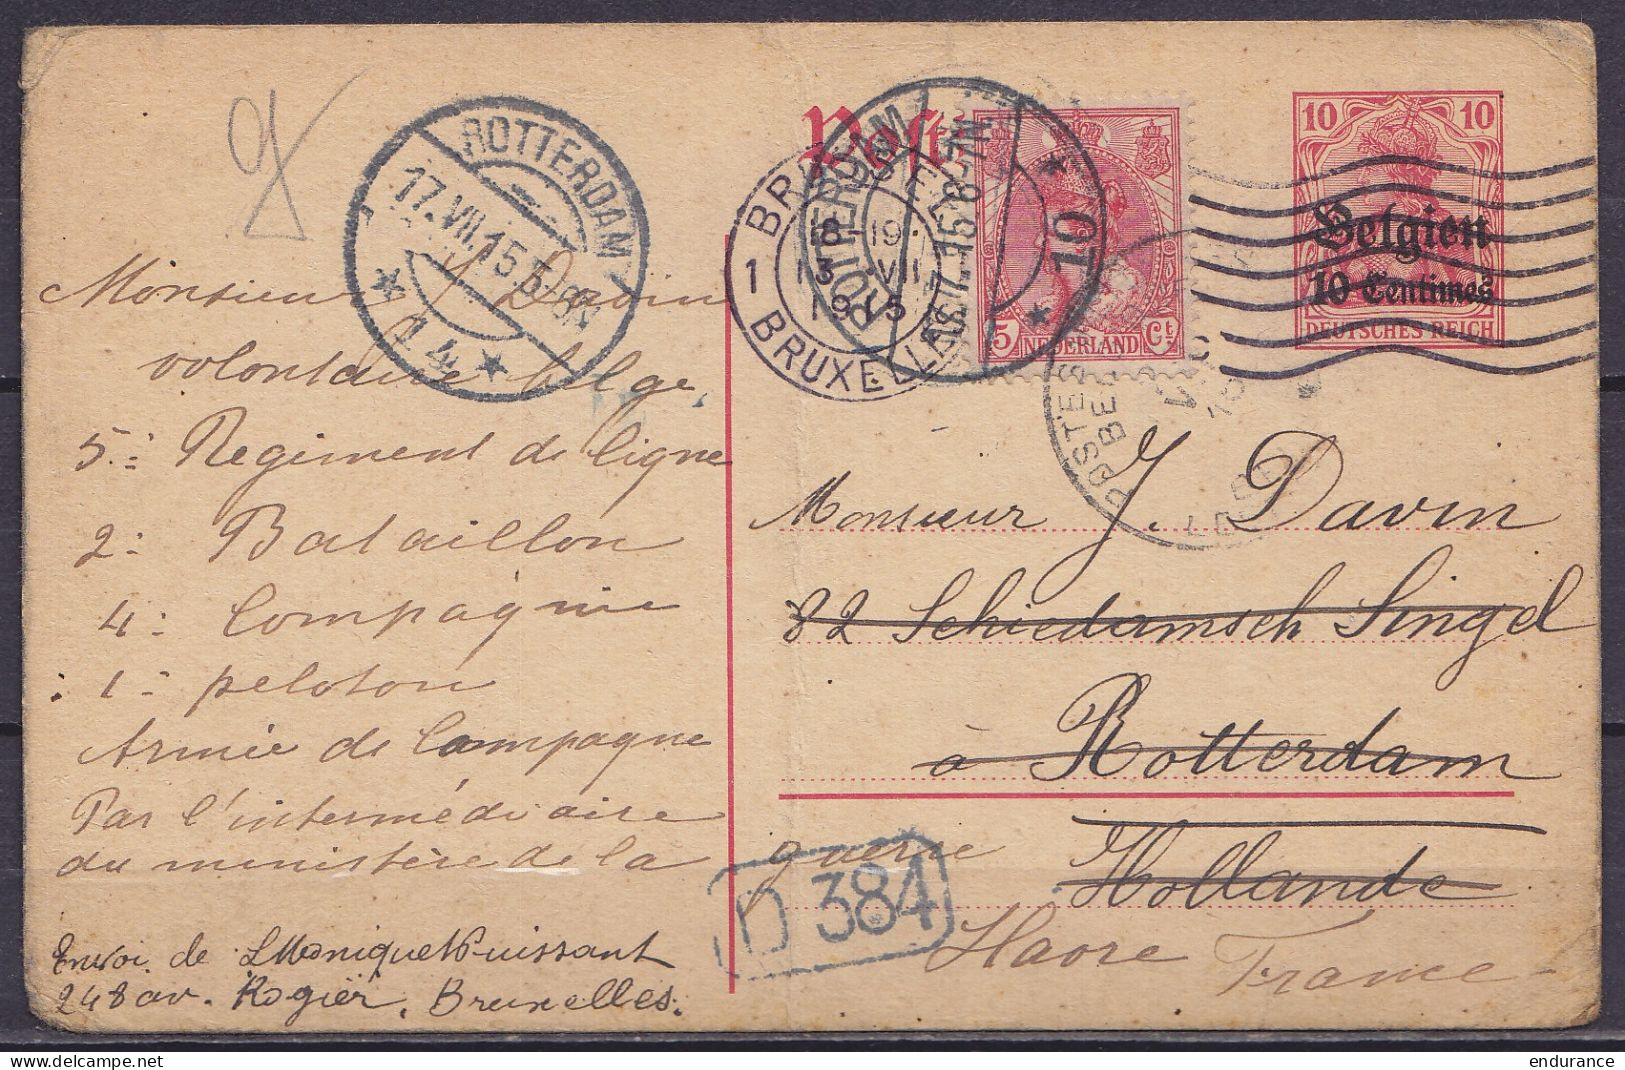 ROTTERDAM
17.VII.15.5-8N
14
BRUSSEL
1 1
18 19
13 VII
1915
BRUXELLES
ROTTERDAM
10
5 NEDERLAND Ct
10 10
Belgien
10 Centimes
DEUTSCHES REICH
POSTES
Monsieur J Davin
volontaire belge
5: Regiment de ligne
2: Bataillon
4: Compagnie
1: peloton
Armée de Campagne
Par l'intermédiaire
du ministère de la guerre
Havre France
Monsieur J. Davin
82 Schiedamsch Singel
à Rotterdam
Hollande
D 384
Envoi de L Monique Puissant
248 av. Rogier, Bruxelles.
delcampe.net
endurance